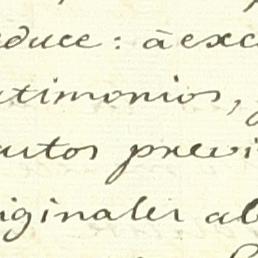 educe: à exc
atimonios,
autos previ
riginales al